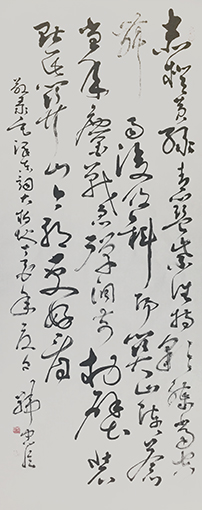 赤橙黄绿青蓝紫谁持彩练当空
舞雨后复斜阳关山阵阵苍
当年鏖战急弹洞前村壁装
点此关山今朝更好看
敬录毛泽东词大柏地